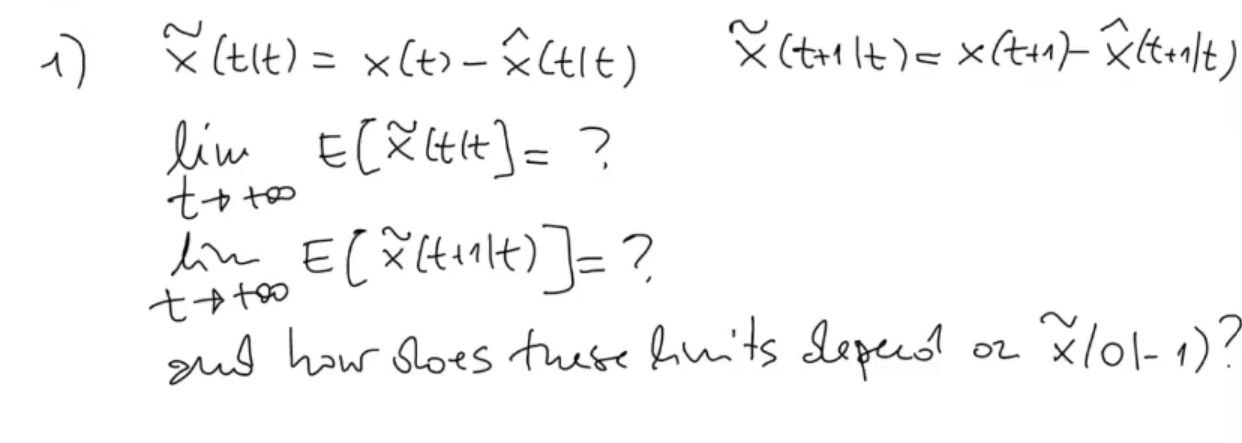 1) x̃(t|t) = x(t) - x̂(t|t) x̃(t+1|t) = x(t+1) - x̂(t+1|t)
lim E[x̃(t|t] = ?
t→+∞
lim E[x̃(t+1|t)] = ?
t→+∞
and how does these limits depend on x̃(0|-1)?